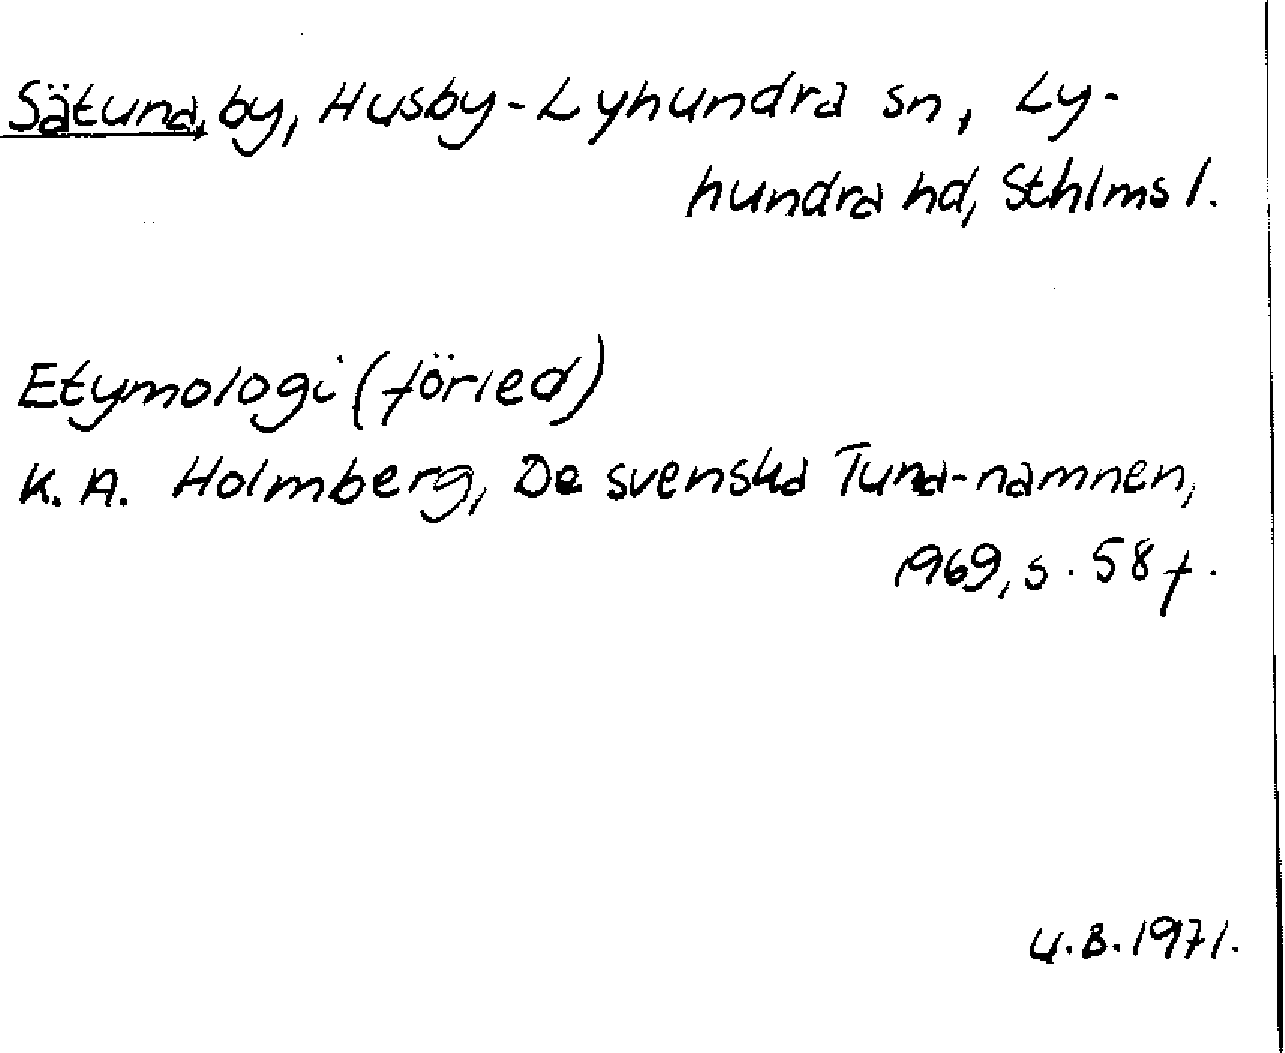 Sätuna, by, Husby-Lyhundra sn, Ly-
hundra hd, Sthlms l.
Etymologi (förled)
K. A. Holmberg, De svenska Tuna-namnen,
1969, s. 58 f.
U.B. 1971.